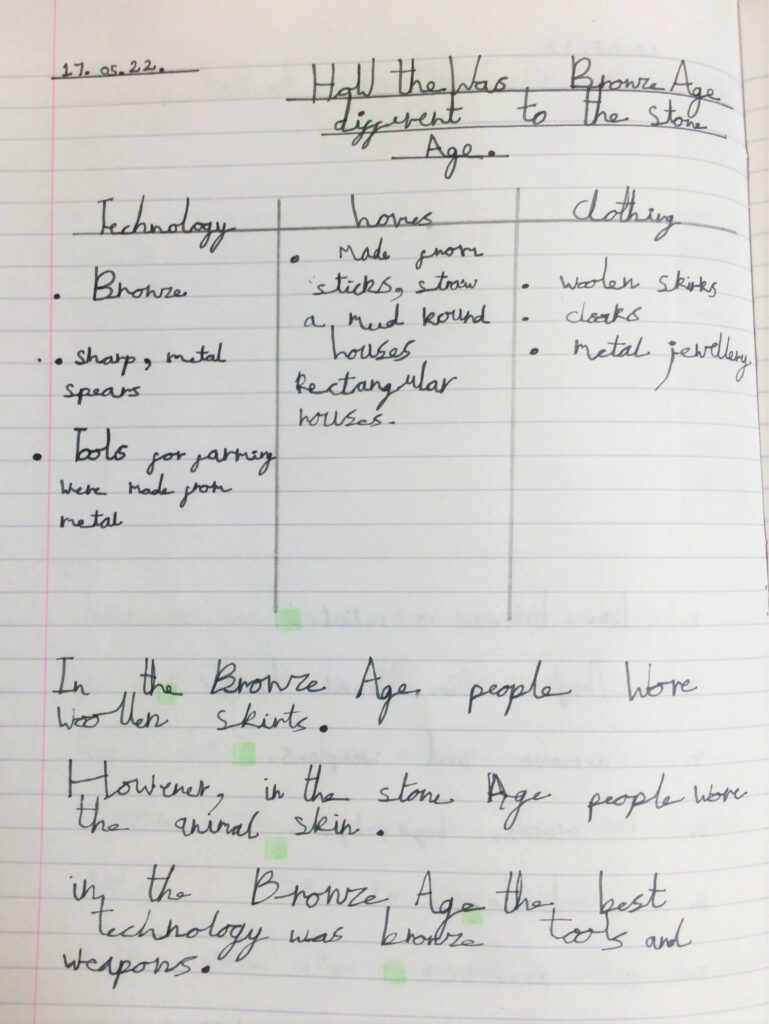 17.05.22.
How the Was, Bronze Age
different to the stone
Age.
Technology
• Bronze
• sharp, metal
spears
• Tools for farming
were made from
metal
homes
• Made from
sticks, straw
a, mud round
houses
Rectangular
houses.
clothing
• woolen skirts
• cloaks
• metal jewellery
In the Bronze Age, people wore
woollen skirts.
However, in the stone Age people wore
the animal skin.
in the Bronze Age the best
technology was bronze tools and
weapons.